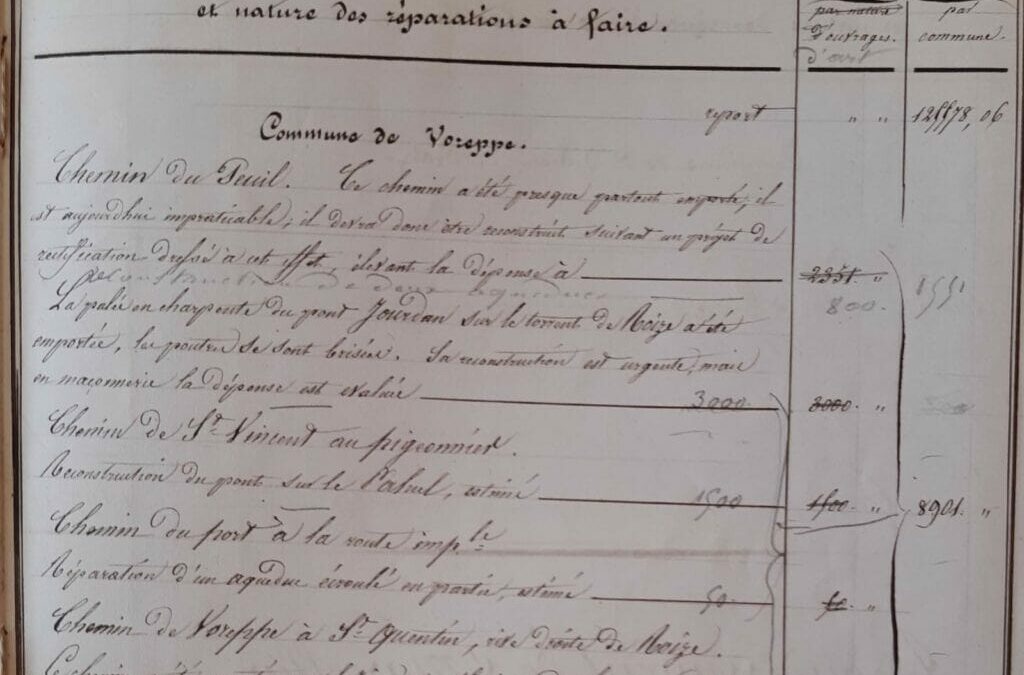 et nature des réparations à faire.
par nature
d'ouvrages.
d'art
par
commune.
report " " 12578, 06
Commune de Voreppe.
Chemin du Peuil. Ce chemin a été presque partout emporté, il
est aujourdhui impraticable ; il devra donc être reconstruit suivant un projet de
rectification dressé à cet effet, élevant la dépense à 2351. "
Reconstruction de deux aqueducs 800. 1551
La palée en charpente du pont Jourdan sur le torrent de Roize a été
emportée, les poutres se sont brisées. Sa reconstruction est urgente, mais
en maçonnerie la dépense est evaluée 3000. 3000. "
Chemin de St Vincent au pigeonnier.
Reconstruction du pont sur le Palluel, estimé 1500 1500. " 8901. "
Chemin du port à la route imple
Réparation d'un aqueduc écroulé en partie, estimé 50. 50. "
Chemin de Voreppe à St Quentin, rive droite de Roize.
Ce chemin